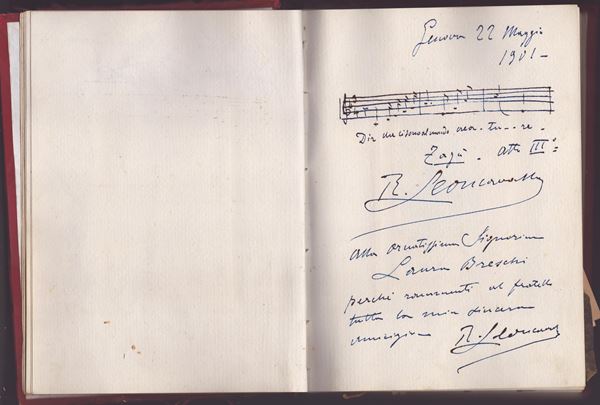 Genova 22 Maggio
1901 -
Dir che ci sono al mondo crea - tu - - re -
Zazà - atto III°=
R. Leoncavallo
Alla ornatissima Signorina
Laura Breschi
perchè rammenti al fratello
tutta la mia sincera
amicizia
R. Leoncavallo